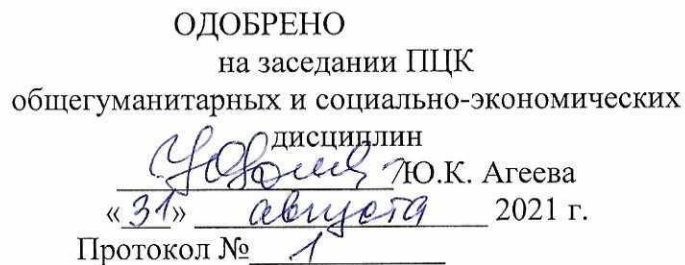 ОДОБРЕНО
на заседании ПЦК
общегуманитарных и социально-экономических
дисциплин
/Ю.К. Агеева
«31» августа 2021 г.
Протокол № 1